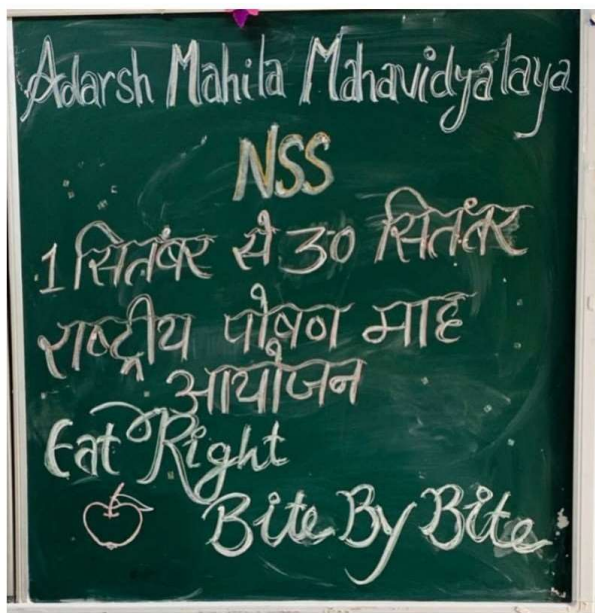 Adarsh Mahila Mahavidyalaya
NSS
1 सितंबर से 30 सितंबर
राष्ट्रीय पोषण माह
आयोजन
Eat Right
Bite By Bite